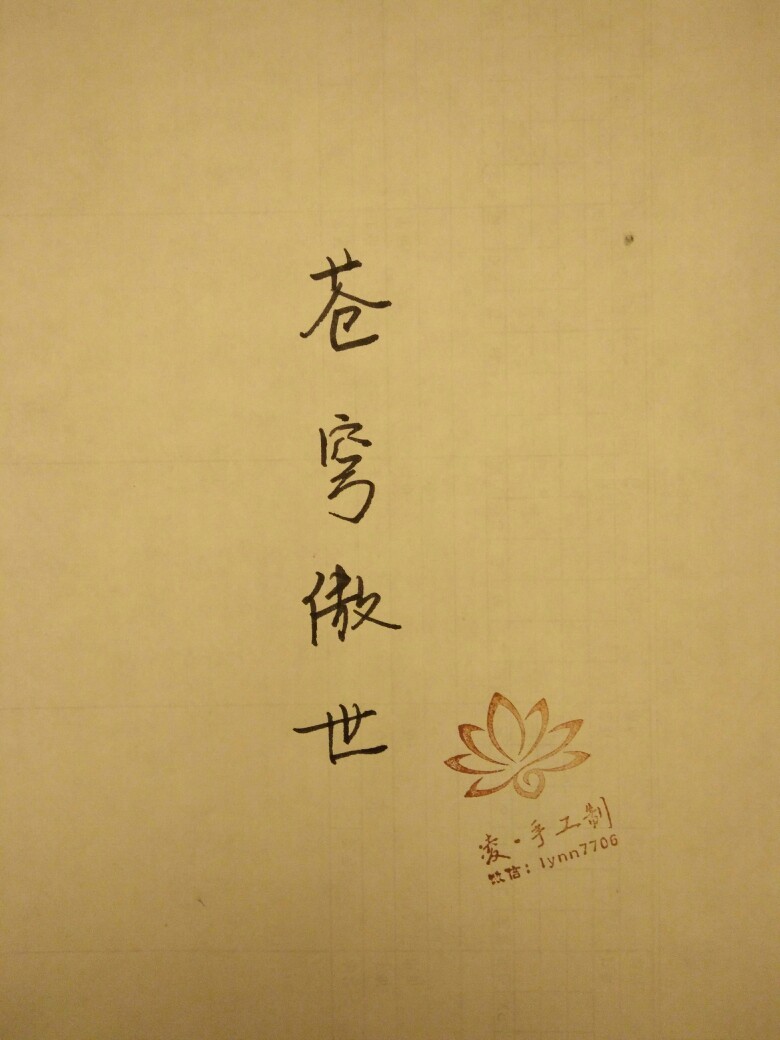 苍穹傲世
凌·手工制
微信：lynn7706